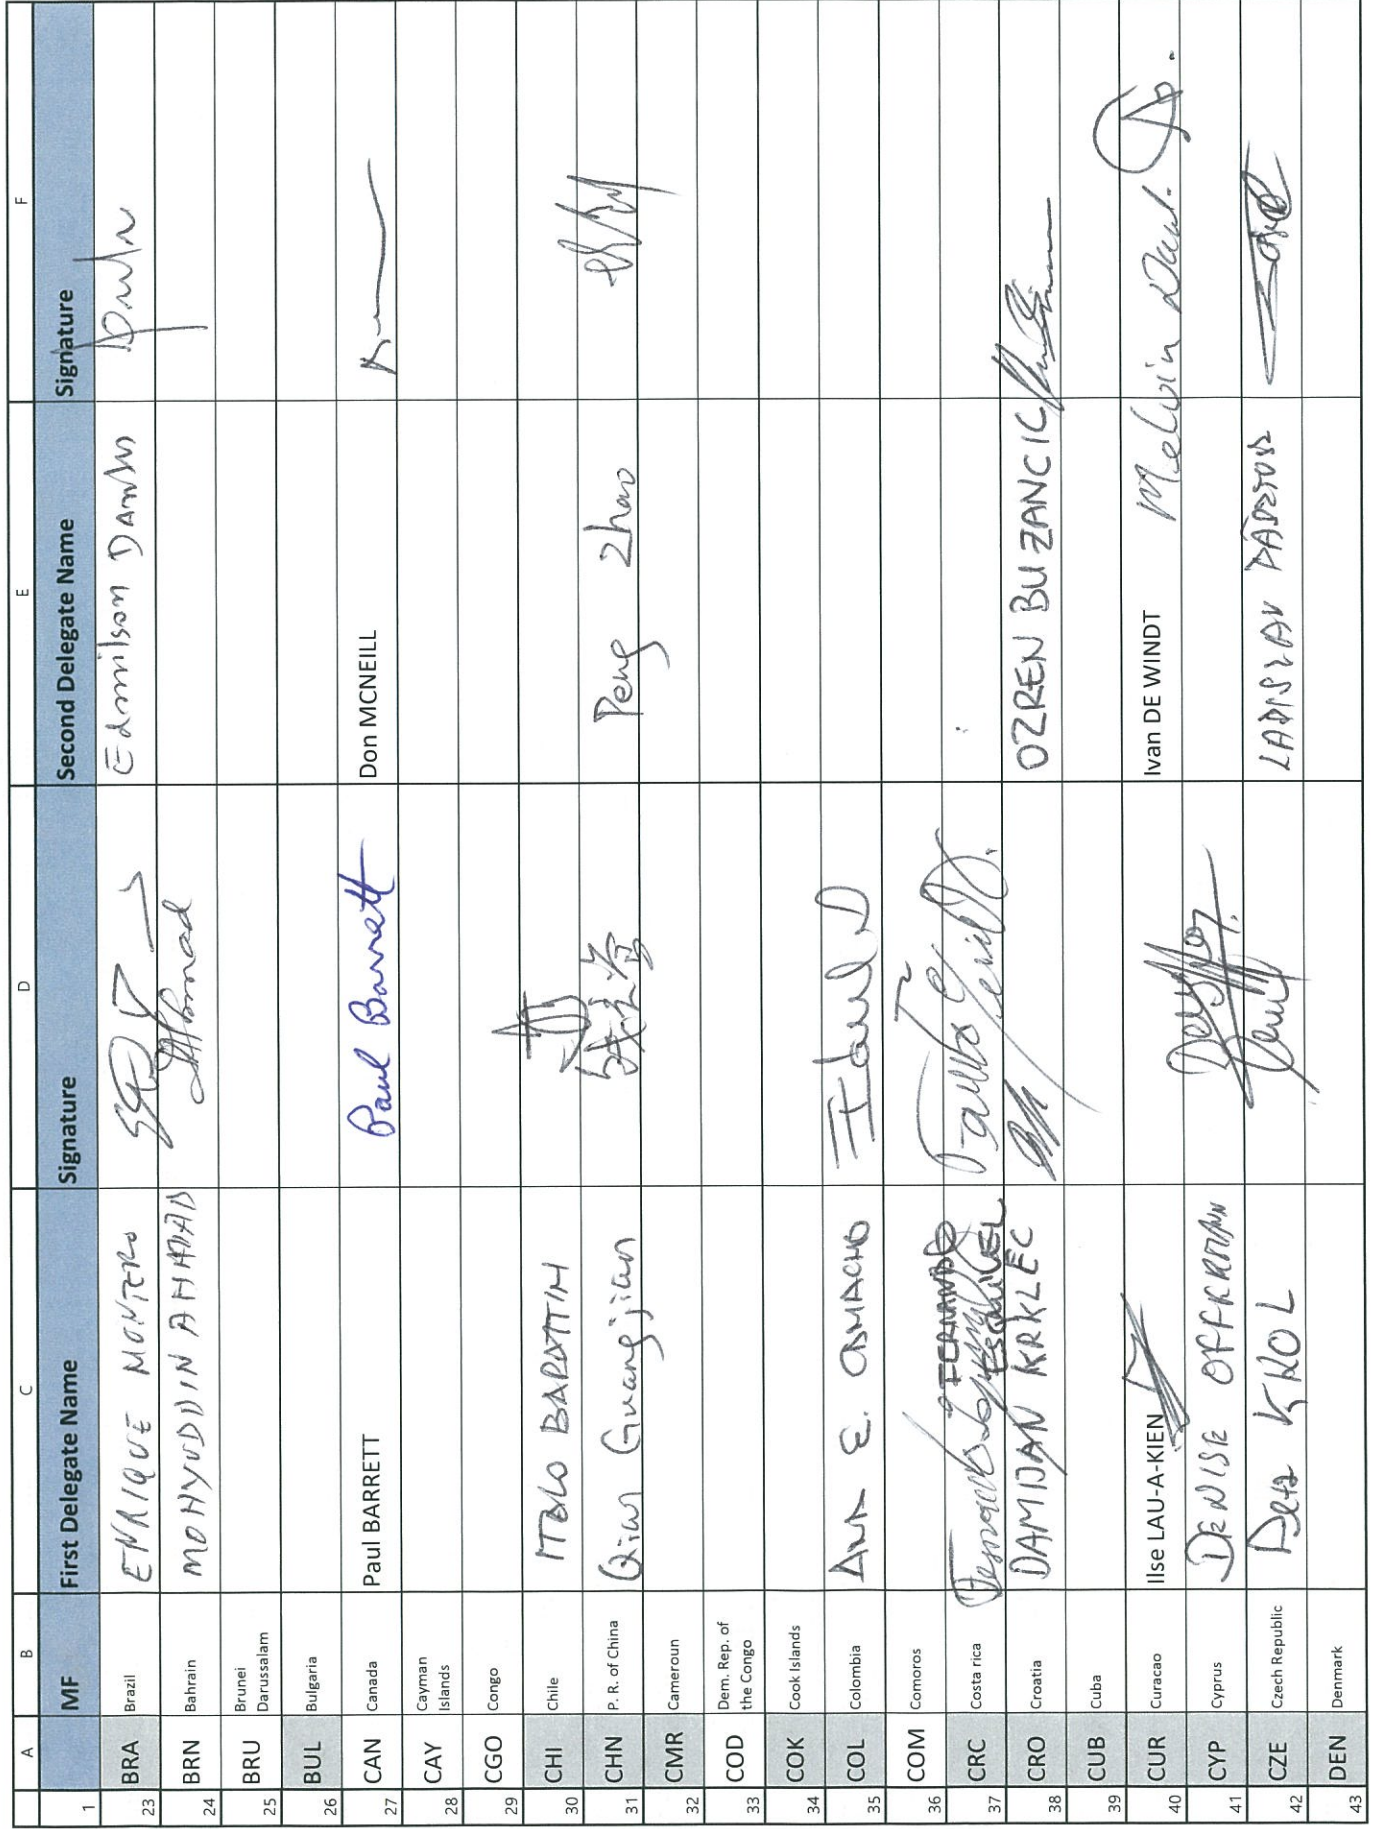 A B C D E F
1 MF First Delegate Name Signature Second Delegate Name Signature
23 BRA Brazil ENRIQUE MONTERO Edmilson DANTAS
24 BRN Bahrain MOHYUDDIN AHMAD Ahmad
25 BRU Brunei Darussalam
26 BUL Bulgaria
27 CAN Canada Paul BARRETT Paul Barrett Don MCNEILL
28 CAY Cayman Islands
29 CGO Congo
30 CHI Chile ITALO BARATTINI
31 CHN P. R. of China Qian Guangjian Peng Zhao
32 CMR Cameroun
33 COD Dem. Rep. of the Congo
34 COK Cook Islands
35 COL Colombia ANA E. CAMACHO
36 COM Comoros
37 CRC Costa rica FERNANDO ESQUIVEL
38 CRO Croatia DAMIJAN KRKLEC OZREN BUZANCIC
39 CUB Cuba
40 CUR Curacao Ilse LAU-A-KIEN Ivan DE WINDT Melvin
41 CYP Cyprus DENISE OFFERMANN
42 CZE Czech Republic PETR KHOL LADISLAV
43 DEN Denmark